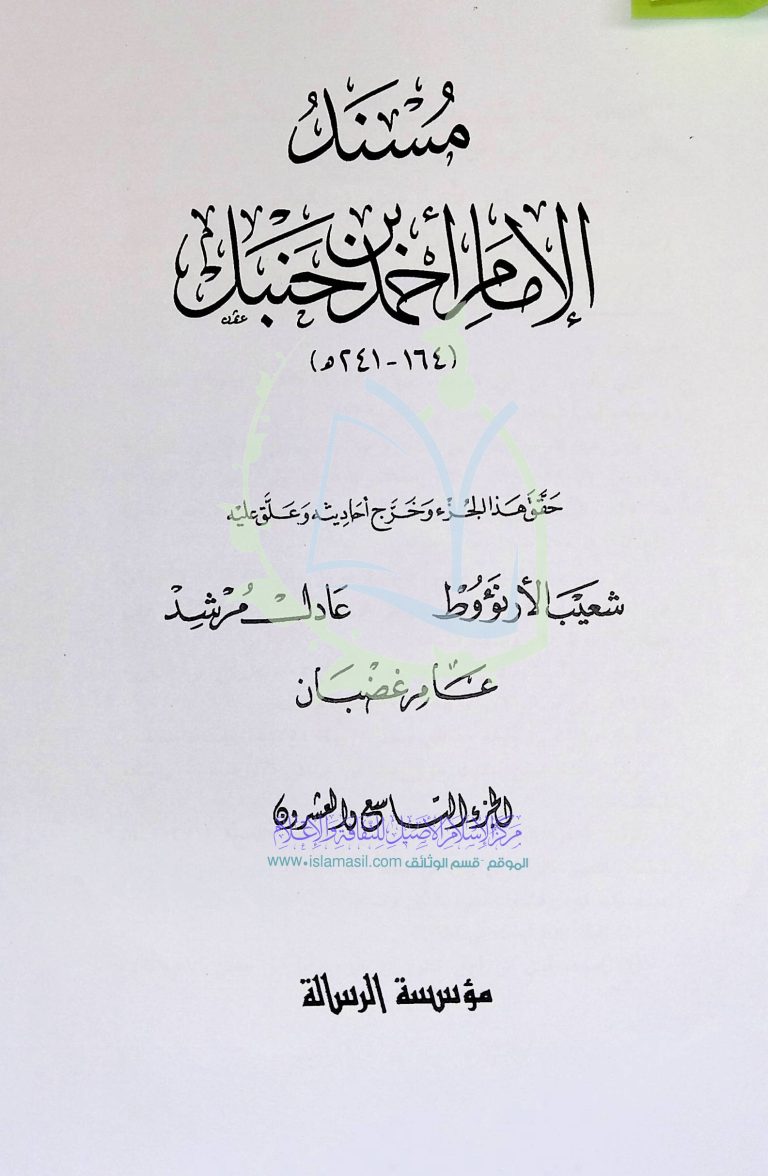 مُسْنَدُ
الإِمَامِ أَحْمَدَ بْنِ حَنْبَل
(١٦٤ - ٢٤١ هـ)
حَقَّقَ هَذَا الجُزْء وَخَرَّج أحَادِيثه وَعَلَّق عليْه
شعَيْب الأرنَؤُوط عَادل مُرْشِد
عَامِر غضْبَان
الجزء التاسع والعشرون
مركز الإسلام الأصيل للثقافة والإعلام
الموقع - قسم الوثائق www.islamasil.com
مؤسسة الرسالة